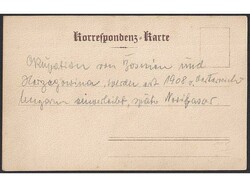 Korrespondenz-Karte
Okupation von Bosnien und
Herzegowina, werden erst 1908 v. Oesterreich
Ungarn einverleibt, später